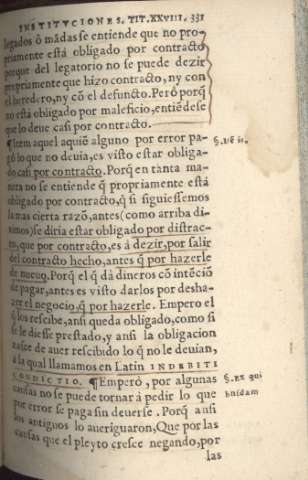 INSTITVCIONES. TIT. XXVIII. 331
legados ò mãdas se entiende que no pro-
priamente está obligado por contracto
porque del legatorio no se puede dezir
propriamente que hizo contracto, ny con
el heredero, ny cõ el defuncto. Però porq̃
no está obligado por maleficio, entiẽdese
que lo deue casi por contracto.
¶Item aquel aquiẽ alguno por error pa-
gò lo que no deuia, es visto estar obliga-
do casi por contracto. Porq̃ en tanta ma-
nera no se entiende q̃ propriamente está
obligado por contracto, q̃ si siguiessemos
la mas cierta razõ, antes (como arriba di-
ximos) se diria estar obligado por distrac-
to, que por contracto, es à dezir, por salir
del contracto hecho, antes q̃ por hazerle
de nueuo. Porq̃ el q̃ dà dineros cõ intẽciõ
de pagar, antes es visto darlos por desha-
zer el negocio, q̃ por hazerle. Empero el
q̃ los rescibe, ansi queda obligado, como si
se le diesse prestado, y ansi la obligacion
nasce de auer rescibido lo q̃ no le deuian,
à la qual llamamos en Latin INDEBITI
CONDICTIO. ¶Emperò, por algunas
causas no se puede tornar à pedir lo que
por error se paga sin deuerse. Porq̃ ansi
los antiguos lo aueriguaron, Que por las
causas que el pleyto cresce negando, por
las
§. Ex qui
busdam